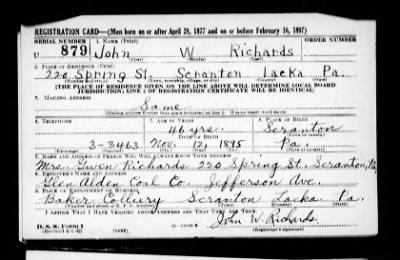 REGISTRATION CARD—(Men born on or after April 28, 1877 and on or before February 16, 1897)
SERIAL NUMBER 1. NAME (Print) ORDER NUMBER
U 879 John W Richards
(First) (Middle) (Last)
2. PLACE OF RESIDENCE (Print)
220 Spring St. Scranton Lacka Pa.
(Number and street) (Town, township, village, or city) (County) (State)
(THE PLACE OF RESIDENCE GIVEN ON THE LINE ABOVE WILL DETERMINE LOCAL BOARD
JURISDICTION; LINE 2 OF REGISTRATION CERTIFICATE WILL BE IDENTICAL)
3. MAILING ADDRESS
Same
4. TELEPHONE 5. AGE IN YEARS 6. PLACE OF BIRTH
46 yrs. Scranton
DATE OF BIRTH
3-3463 Nov. 12, 1895 Pa.
7. NAME AND ADDRESS OF PERSON WHO WILL ALWAYS KNOW YOUR ADDRESS
Mrs. Gwen Richards 220 Spring St. Scranton, Pa
8. EMPLOYER'S NAME AND ADDRESS
Glen Alden Coal Co. Jefferson Ave.
9. PLACE OF EMPLOYMENT OR BUSINESS
Baker Colliery Scranton Lacka. Pa.
I AFFIRM THAT I HAVE VERIFIED ABOVE ANSWERS AND THAT THEY ARE TRUE.
John W. Richards.
D. S. S. Form 1
(Registrant's signature)